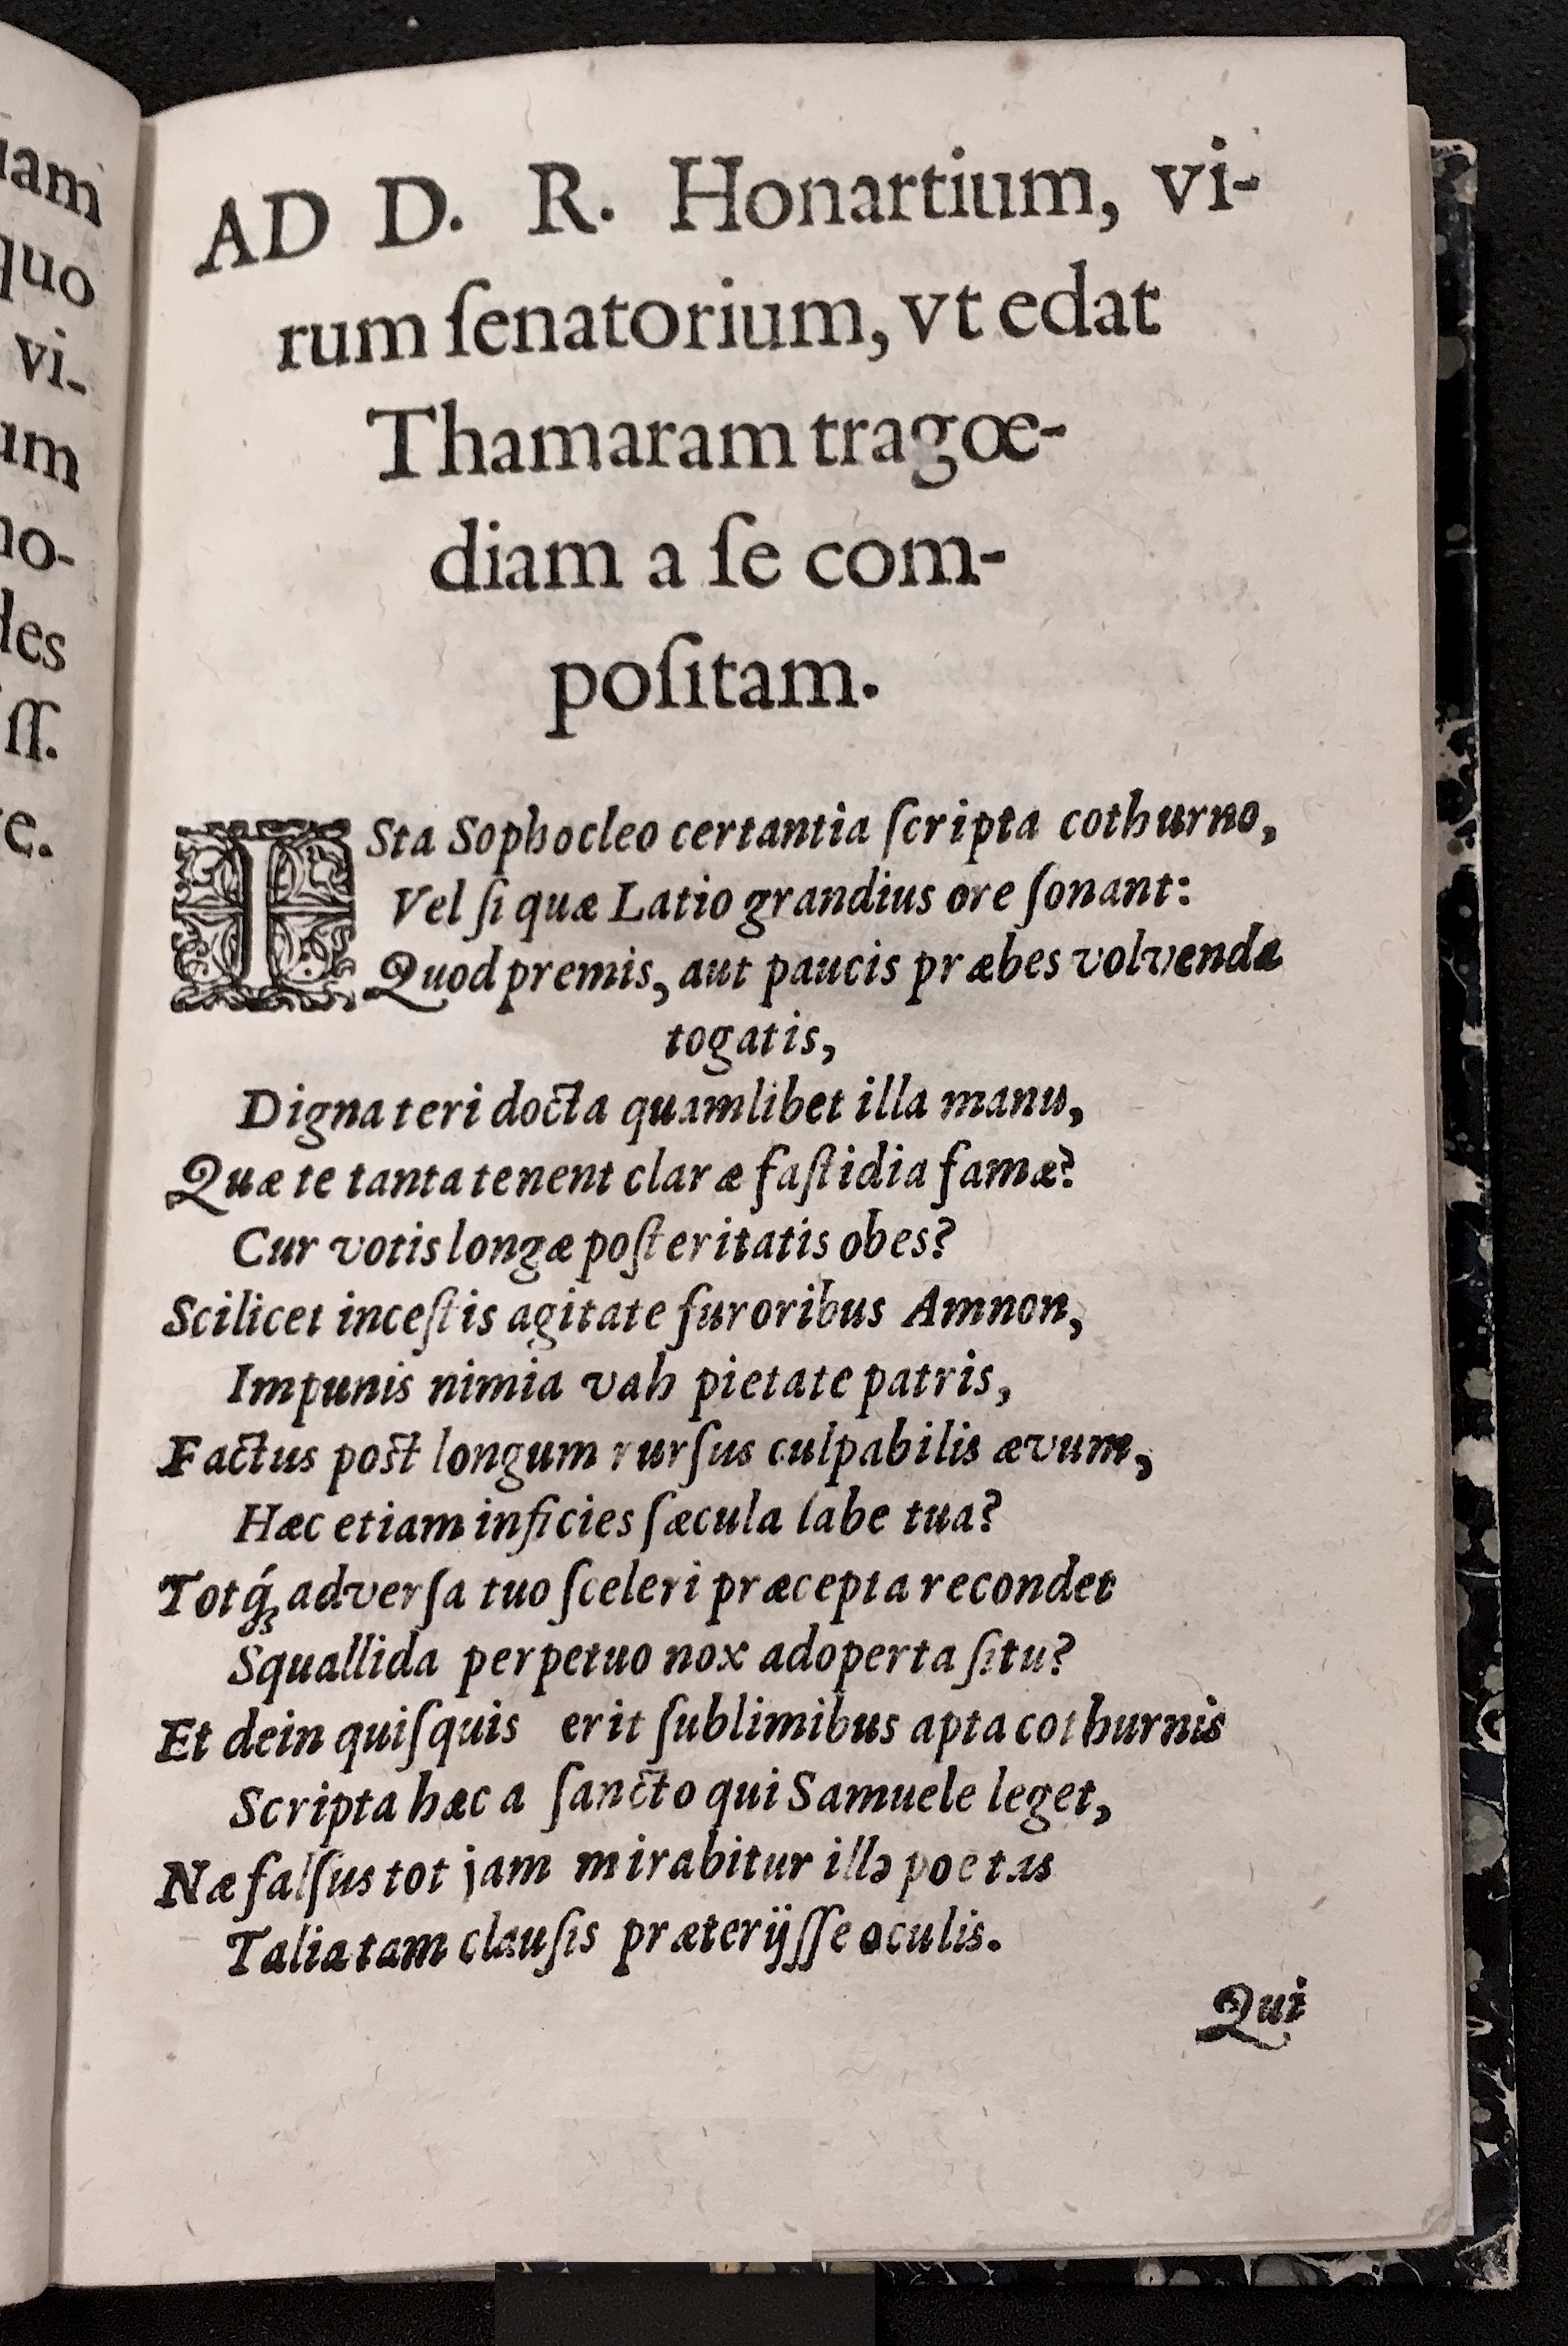 iam
quo
vi-
um
no-
des
ſſ.
e.
AD D. R. Honartium, vi-
rum ſenatorium, vt edat
Thamaram tragœ-
diam a ſe com-
poſitam.
ISta Sophocleo certantia ſcripta cothurno,
Vel ſi quæ Latio grandius ore ſonant:
Quod premis, aut paucis præbes volvenda
togatis,
Digna teri docta quamlibet illa manu,
Quæ te tanta tenent claræ faſtidia famæ?
Cur votis longæ poſteritatis obes?
Scilicet inceſtis agitate furoribus Amnon,
Impunis nimia vah pietate patris,
Factus poſt longum rurſus culpabilis ævum,
Hæc etiam inficies ſæcula labe tua?
Totq́; adverſa tuo ſceleri præcepta recondet
Squallida perpetuo nox adoperta ſitu?
Et dein quiſquis erit ſublimibus apta cothurnis
Scripta hæc a ſancto qui Samuele leget,
Næ falſus tot jam mirabitur illo poetas
Talia tam clauſis præterijſſe oculis.
Qui